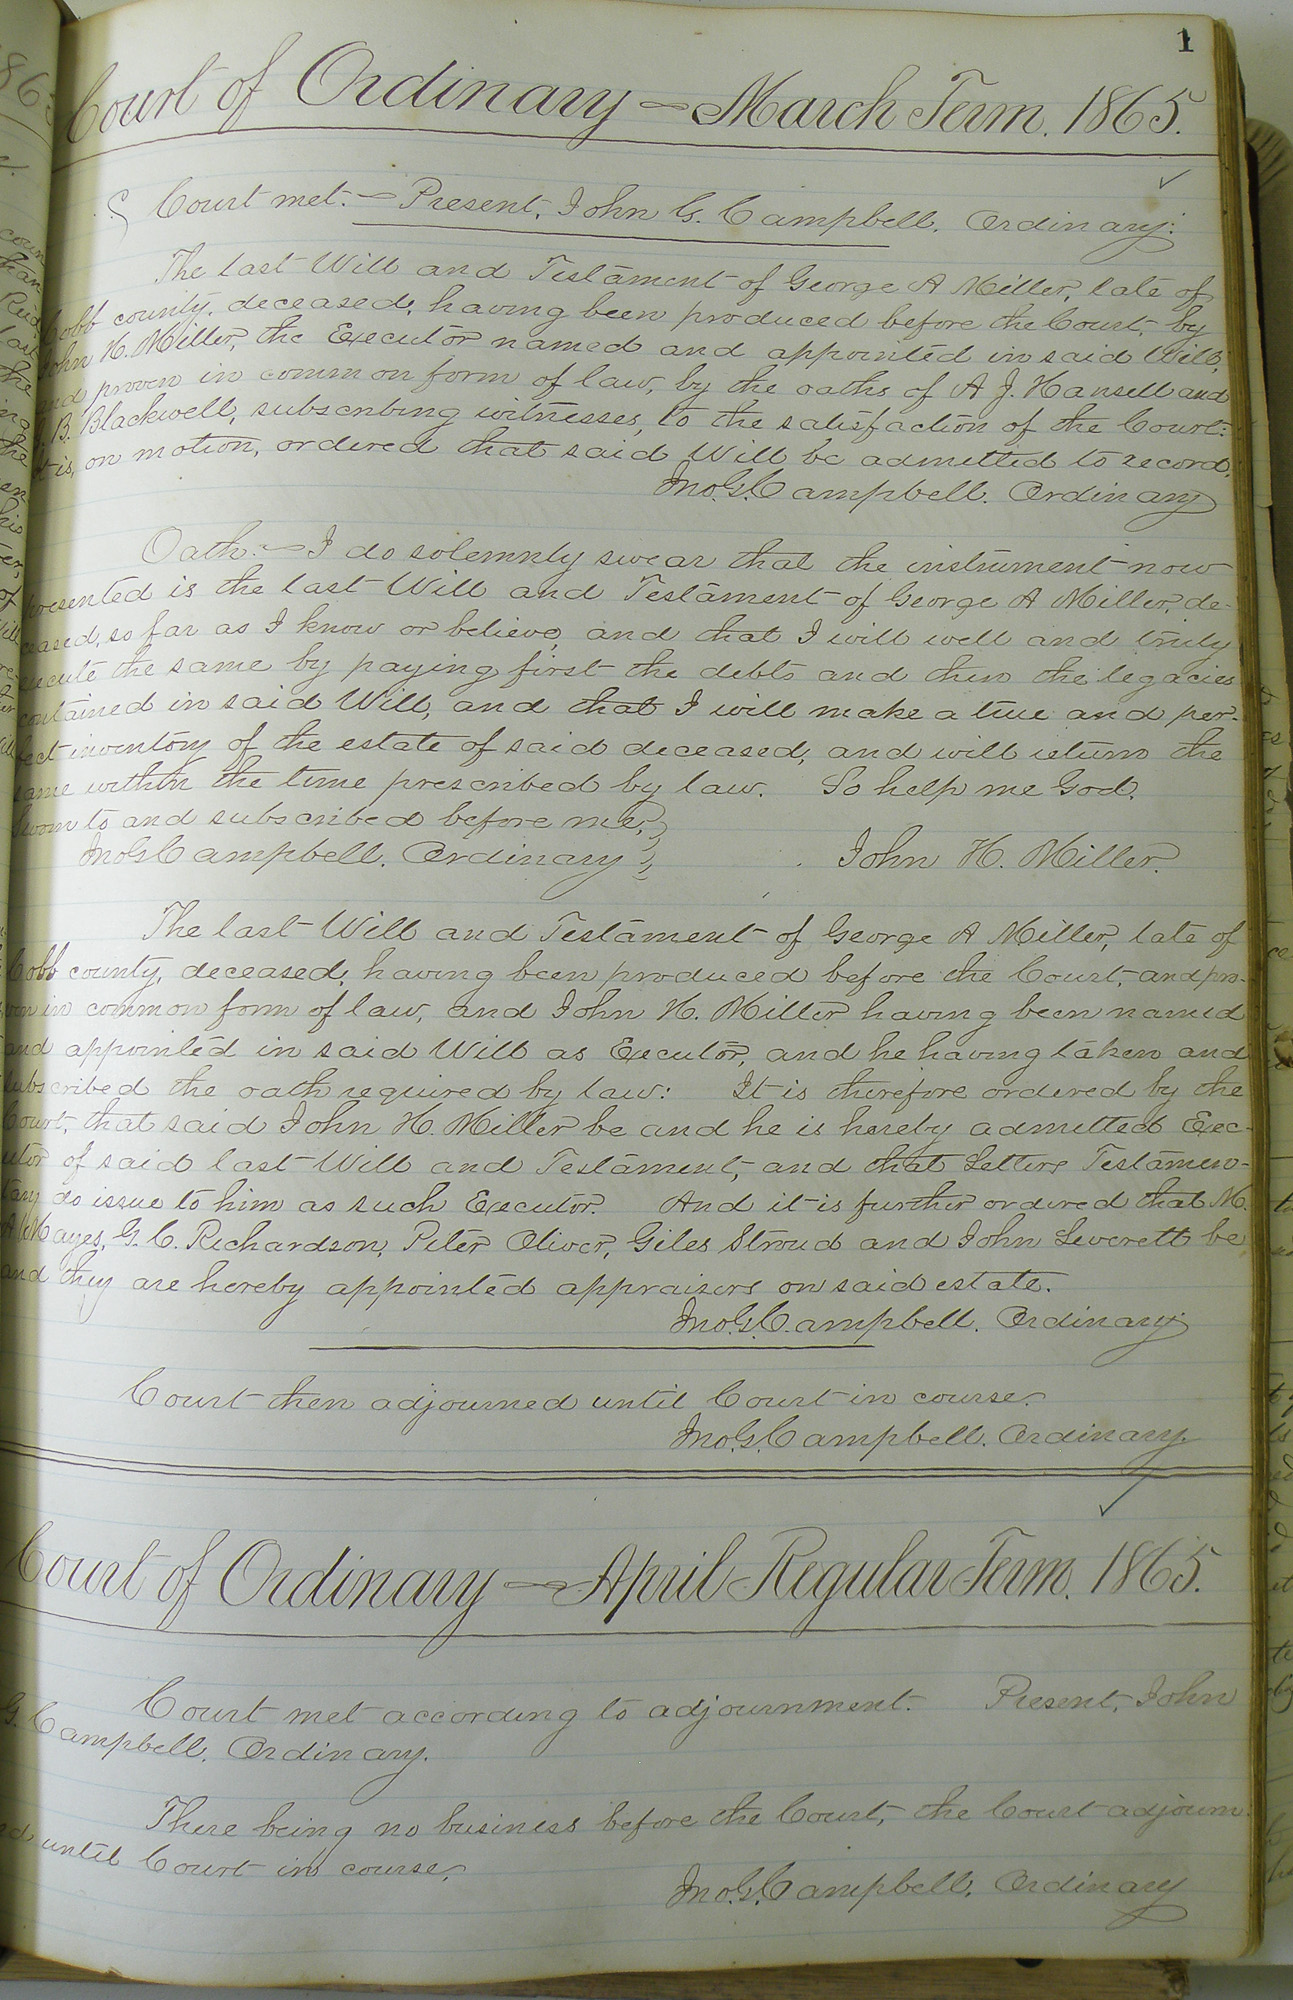 1
Court of Ordinary — March Term. 1865.
Court met. — Present, John G. Campbell, Ordinary.
The last Will and Testament of George A Miller, late of
Cobb county, deceased, having been produced before the Court, by
John H. Miller, the Executor named and appointed in said Will,
and proven in common form of law, by the oaths of A J. Hansell and
B. Blackwell, subscribing witnesses, to the satisfaction of the Court:
It is, on motion, ordered that said Will be admitted to record.
Jno. G. Campbell. Ordinary
Oath. — I do solemnly swear that the instrument now
presented is the last Will and Testament of George A Miller, de-
ceased, so far as I know or believe, and that I will well and truly
execute the same by paying first the debts and then the legacies
contained in said Will, and that I will make a true and per-
fect inventory of the estate of said deceased, and will return the
same within the time prescribed by law. So help me God.
Sworn to and subscribed before me,
Jno G. Campbell. Ordinary John H. Miller.
The last Will and Testament of George A Miller, late of
Cobb county, deceased, having been produced before the Court, and pro-
ven in common form of law, and John H. Miller having been named
and appointed in said Will as Executor, and he having taken and
subscribed the oath required by law: It is therefore ordered by the
Court, that said John H. Miller be and he is hereby admitted Exec-
utor of said last Will and Testament, and that Letters Testamen-
tary do issue to him as such Executor. And it is further ordered that M.
Mayes, G. C. Richardson, Peter Oliver, Giles Stroud and John Leverett be
and they are hereby appointed appraisers on said estate.
Jno. G. Campbell. Ordinary
Court then adjourned until Court in course.
Jno. G. Campbell. Ordinary.
Court of Ordinary — April Regular Term. 1865.
Court met according to adjournment. Present, John
G. Campbell, Ordinary.
There being no business before the Court, the Court adjourn-
ed until Court in course.
Jno. G. Campbell, Ordinary